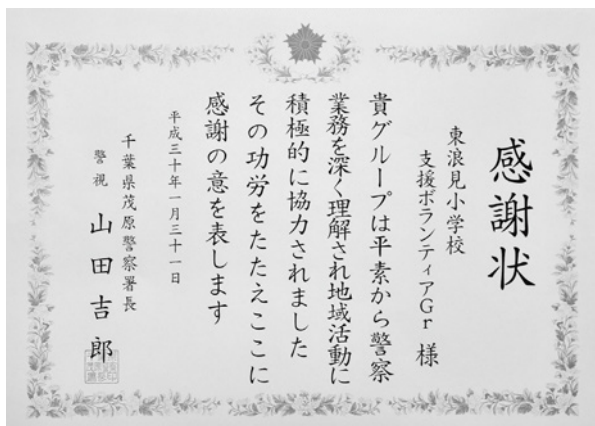 感謝状
東浪見小学校
支援ボランティアGr 様
貴グループは平素から警察
業務を深く理解され地域活動に
積極的に協力されました
その功労をたたえここに
感謝の意を表します
平成三十年一月三十一日
千葉県茂原警察署長
警視 山田吉郎